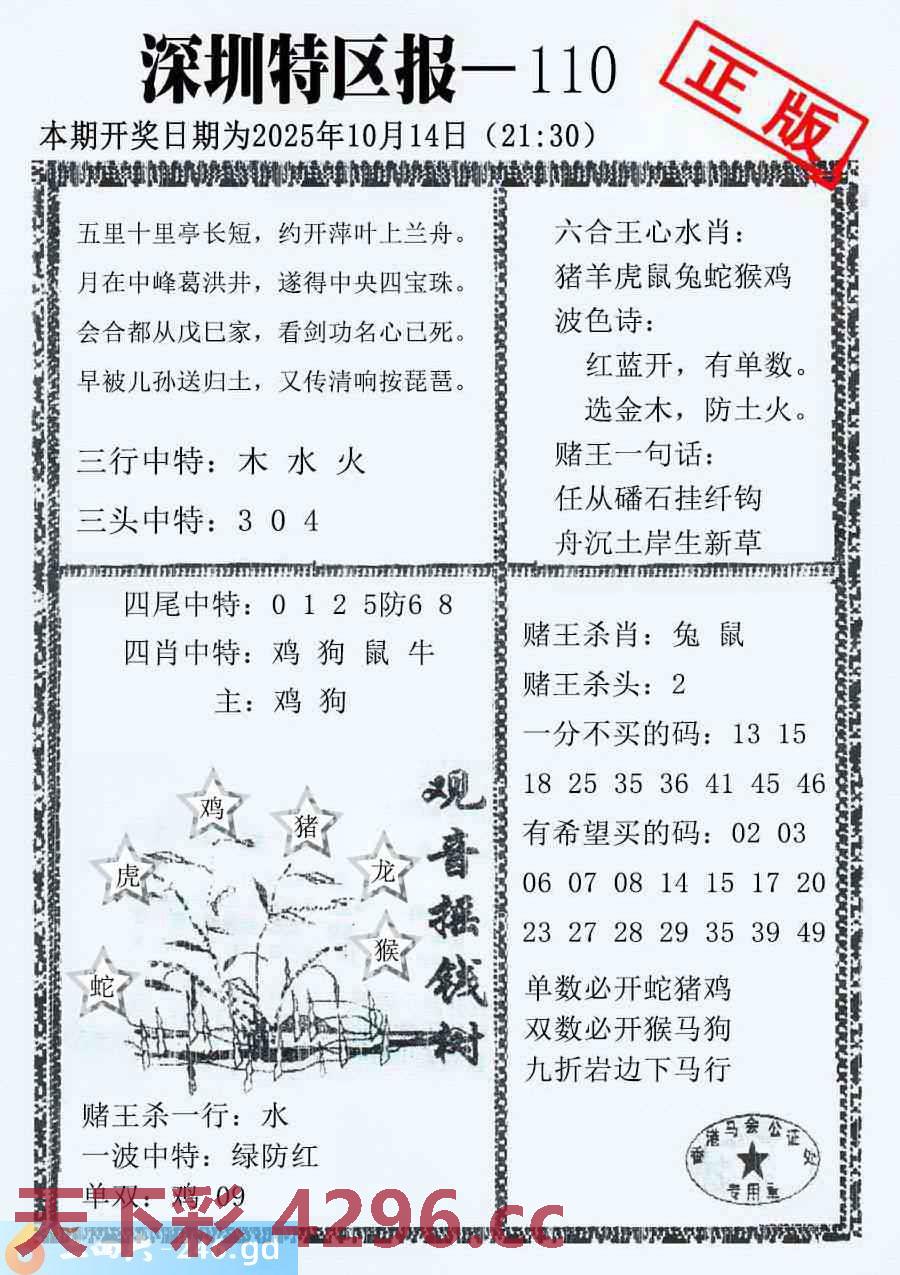 深圳特区报—110
正版
本期开奖日期为2025年10月14日（21:30）
五里十里亭长短，约开萍叶上兰舟。
月在中峰葛洪井，遂得中央四宝珠。
会合都从戊巳家，看剑功名心已死。
早被儿孙送归土，又传清响按琵琶。
三行中特：木 水 火
三头中特：3 0 4
六合王心水肖：
猪羊虎鼠兔蛇猴鸡
波色诗：
红蓝开，有单数。
选金木，防土火。
赌王一句话：
任从磻石挂纤钩
舟沉土岸生新草
四尾中特：0 1 2 5防6 8
四肖中特：鸡 狗 鼠 牛
主：鸡 狗
鸡
猪
虎
龙
猴
蛇
观音摇钱树
赌王杀一行：水
一波中特：绿防红
单双：鸡.09
赌王杀肖：兔 鼠
赌王杀头：2
一分不买的码：13 15
18 25 35 36 41 45 46
有希望买的码：02 03
06 07 08 14 15 17 20
23 27 28 29 35 39 49
单数必开蛇猪鸡
双数必开猴马狗
九折岩边下马行
香港马会公证处
专用章
天下彩 4296.cc